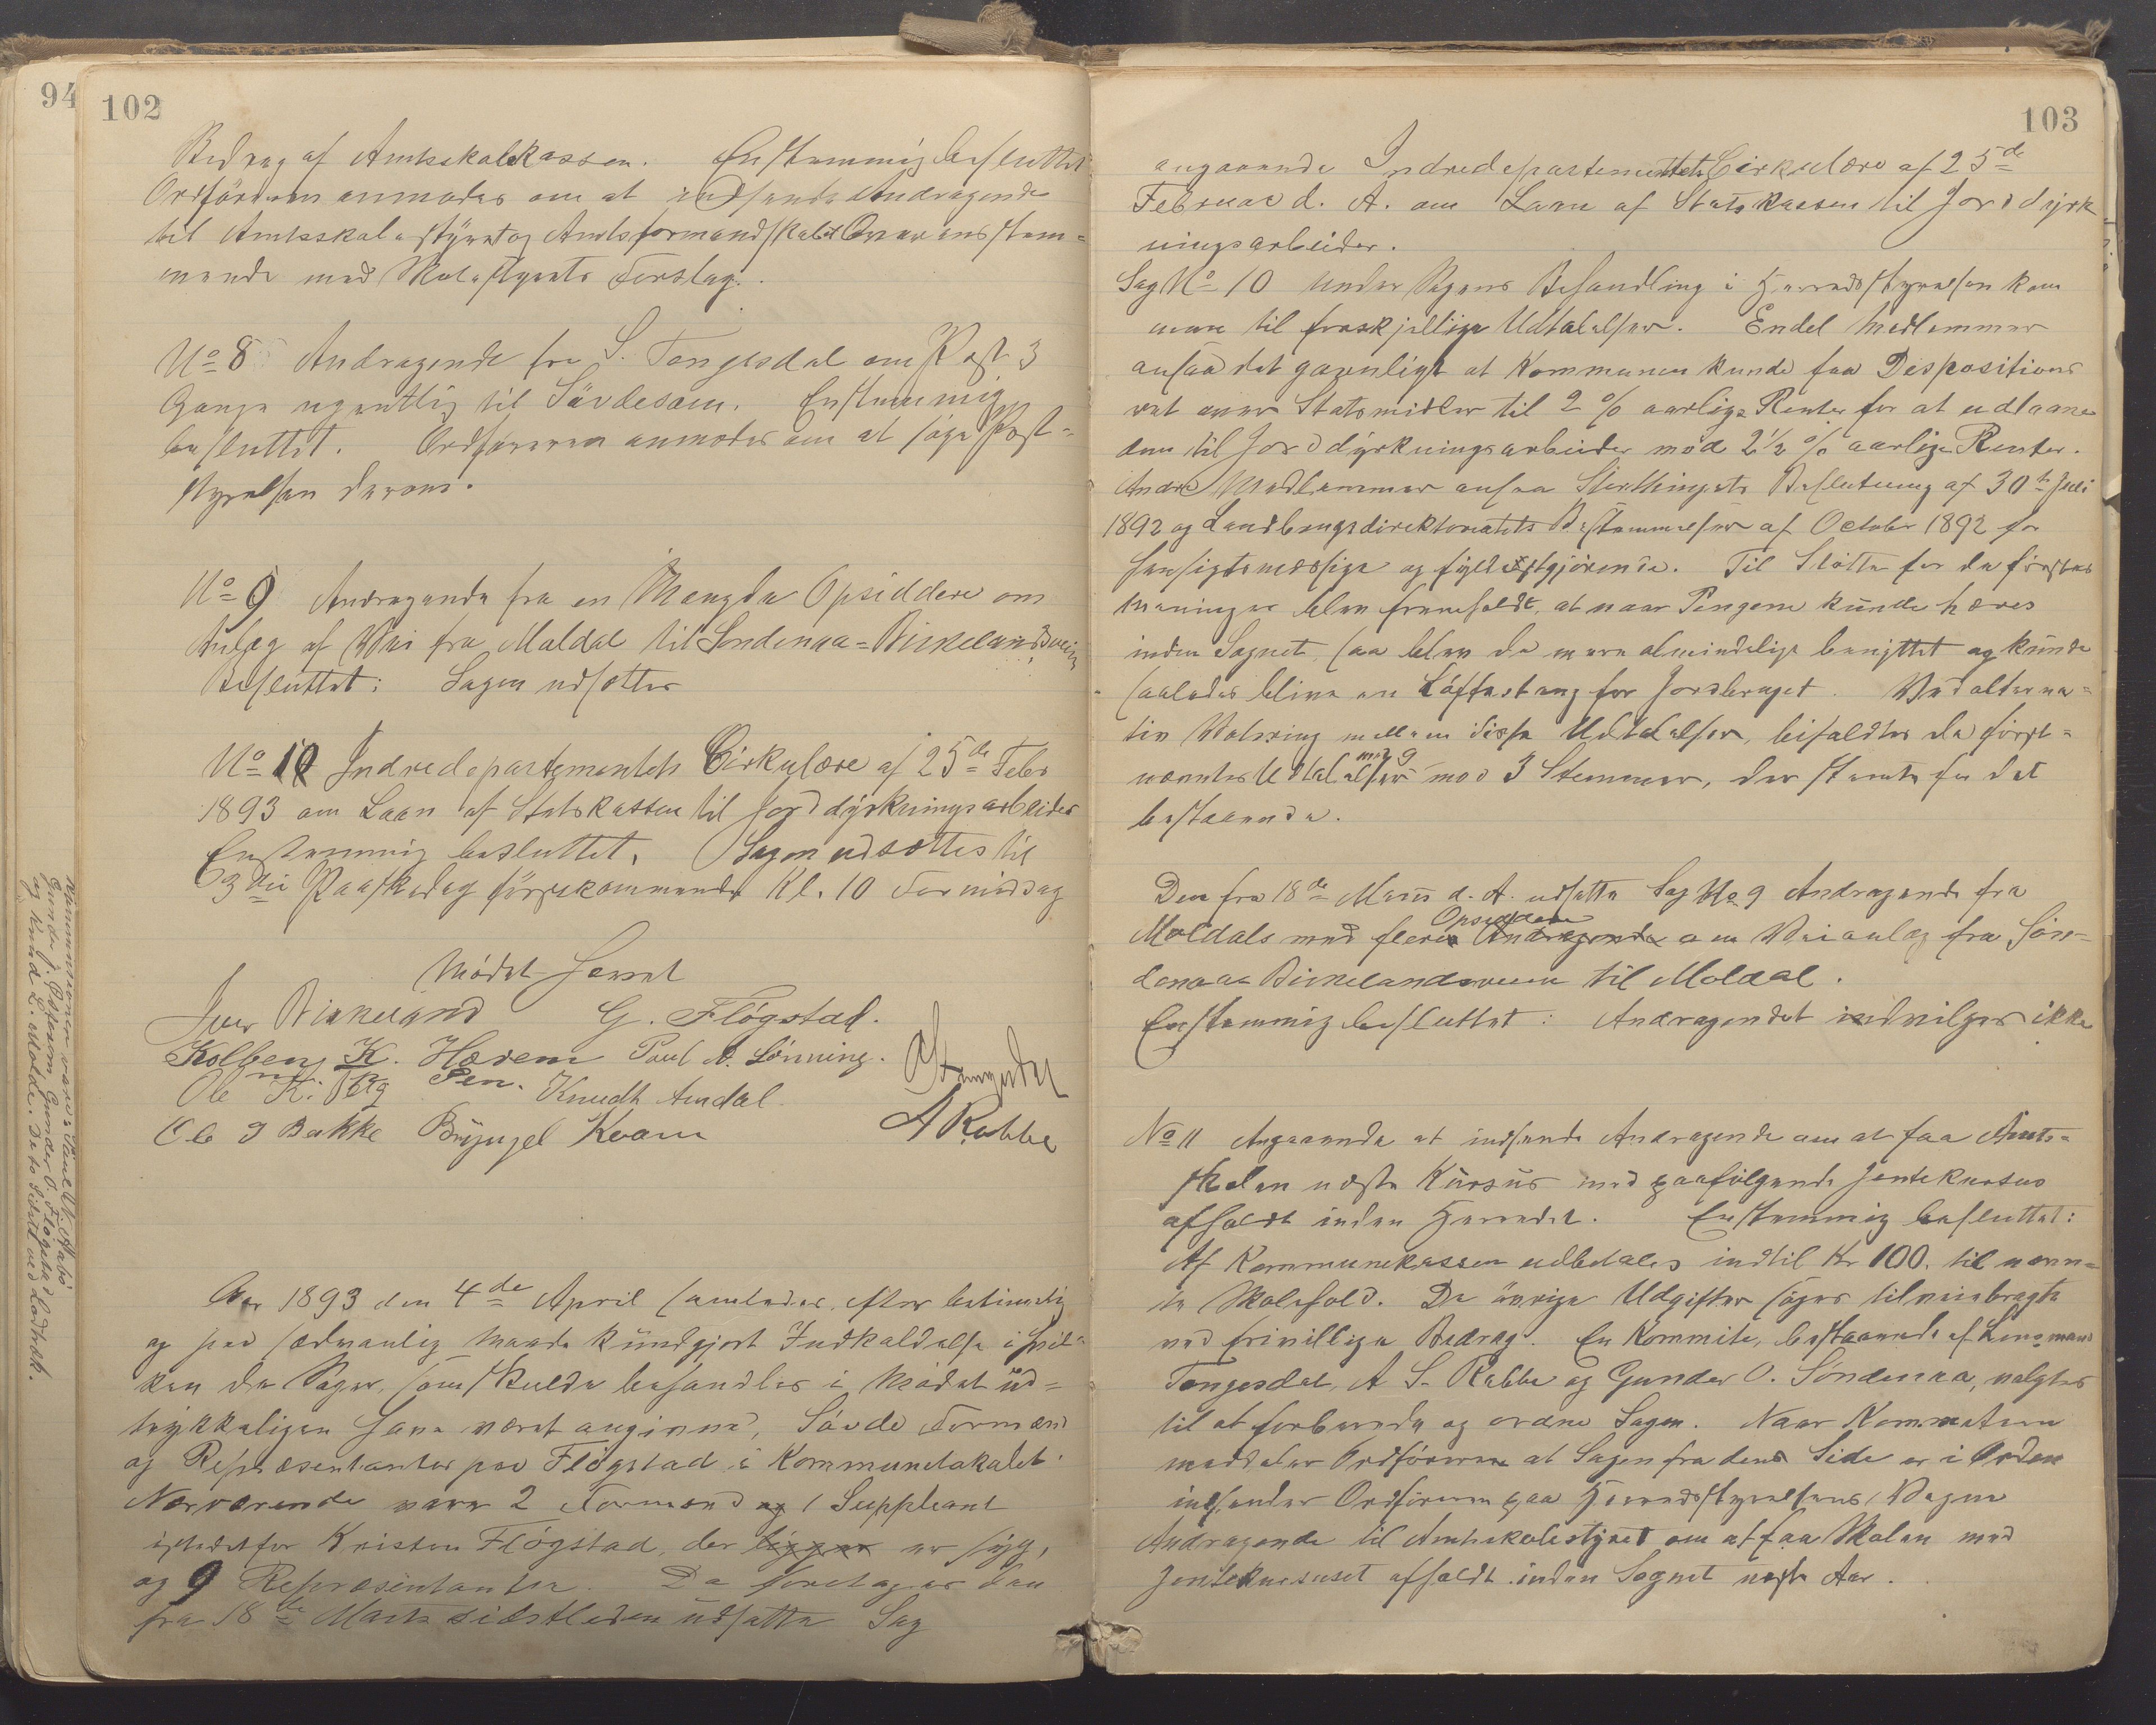 94
102
Bidrag af Amtsskolekassen. Enstemmig besluttet
Ordföreren anmodes om at indsende Andragende
til Amtsskolestyret og Amtsformandskabet overensstem=
mende med Skolestyrets Forslag.
No 8 Andragende fra S. Tengesdal om Post 3
Gange ugentlig til Sövdesøen. Enstemmig
besluttet. Ordföreren anmodes om at söge Post=
styrelsen derom.
No 9 Andragende fra en Mængde Opsiddere om
Anlæg af Vei fra Moldal til Söndenaa=Birkelandsveien
Besluttet: Sagen udsættes
No 10 Indredepartementets Cirkulære af 25de Febr
1893 om Laan af Statskassen til Jorddyrkningsarbeider
Enstemmig besluttet. Sagen udsættes til
3die Paaskedag förstkommende Kl. 10 Formiddag
Mödet hævet
Iver Birkeland G. Flögstad.
Kolben K. Hærem Paul A. Lönning.
Ole K. Berg Knudt Amdal
Ole I Bakke Bryngel Kvam A Rabbe
Aar 1893 den 4de April samledes, efter betimelig
og paa sædvanlig Maade kundgjort Indkaldelse i hvil=
ken de Sager, som skulde behandles i Mödet ud=
trykkeligen have været angivne, Sövde Formænd
og Repræsentanter paa Flögstad i Kommunelokalet.
Nærværende vare 2 Formænd og 1 Suppleant
istedetfor Kristen Flögstad, der ligger er syg,
og 9 Repræsentanter. Da foretages den
fra 18de Marts sidstleden udsatte Sag
103
angaaende Indredepartementets Cirkulære af 25de
Februar d. A. om Laan af Statskassen til Jorddyrk
ningsarbeider.
Sag No 10 Under Sagens Behandling i Herredsstyrelsen kom
man til forskjellige Udtalelser. Endel Medlemmer
ansaa det gavnligt at Kommunen kunde faa Dispositions
ret over Statsmidler til 2 % aarlige Renter for at udlaane
dem til Jorddyrkningsarbeider mod 2½ % aarlige Renter.
Andre Medlemmer ansaa Storthingets Beslutning af 30te Juli
1892 og Landbrugsdirektoratets Bestemmelser af October 1892 for
hensigtsmæssige og fyldestgjörende. Til Stötte for de förstes
Meninger blev fremholdt, at naar Pengene kunde haves
inden Sognet, saa blev de mere almindelige benyttet og kunde
saaledes blive en Löftestang for Jordbruget. Ved alterna=
tiv Votering mellem disse Udtalelser, bifaldtes de först=
nævntes Udtalelser med 9 mod 3 Stemmer, der stemte for det
bestaaende.
Den fra 18de Marts d. A. udsatte Sag No 9 Andragende fra
Moldals med flere Andragende Opsiddere om Veianlæg fra Sön=
denaa Birkelandsveien til Moldal.
Enstemmig besluttet: Andragendet indvilges ikke
No 11 Angaaende at indsende Andragende om at faa Amts=
skolen næste Kursus med paafölgende Jentekursus
afholdt inden Herredet. Enstemmig besluttet:
Af Kommunekassen udbetales indtil Kr 100. til nævn=
te Skolehold. De övrige Udgifter söges tilveiebragte
ved frivillige Bidrag. En Kommite, bestaaende af Lensmand
Tengesdal, A S. Rabbe og Gunder O. Söndenaa, valgtes
til at forberede og ordne Sagen. Naar Kommiteen
meddeler Ordföreren at Sagen fra dens Side er i Orden
indsender Ordföreren paa Herredsstyrelsens Vegne
Andragende til Amtsskolestyret om at faa Skolen med
Jentekursuset afholdt inden Sognet næste Aar.